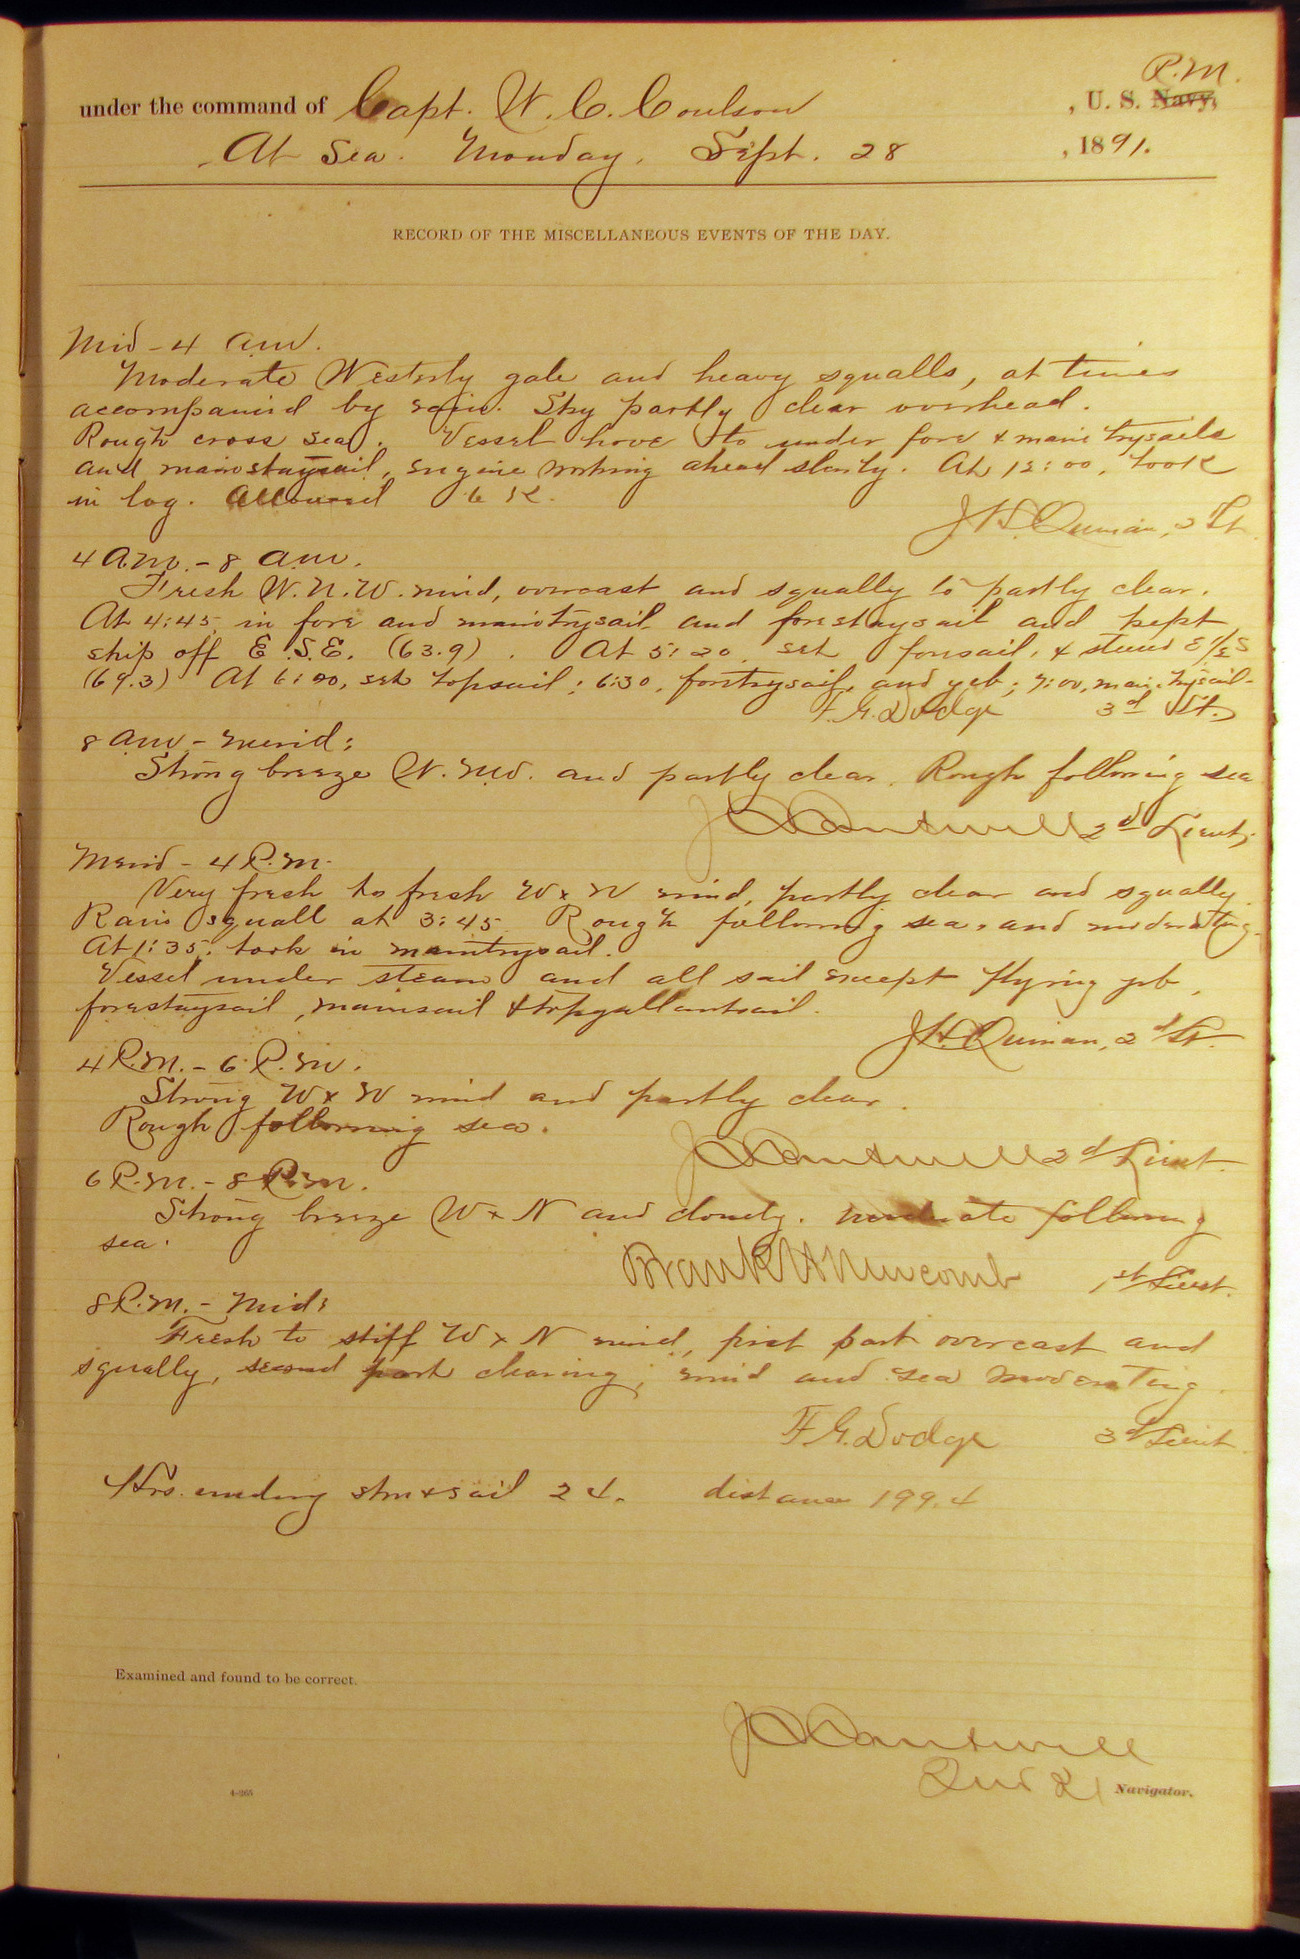 R.M.
under the command of Capt. W. C. Coulson , U. S. Navy,
At Sea. Monday, Sept. 28 , 1891.
RECORD OF THE MISCELLANEOUS EVENTS OF THE DAY.
Mid - 4 am.
Moderate Westerly gale and heavy squalls, at times
accompanied by rain. Sky partly clear overhead.
Rough cross sea. Vessel hove to under fore & main trysails
and mainstaysail, engine working ahead slowly. At 12:00, took
in log. Allowed 6 K.
J.H. Quinan, 2d Lt.
4 am. - 8 am.
Fresh W.N.W. wind, overcast and squally to partly clear.
At 4:45, in fore and maintrysail and forestaysail and kept
ship off E.S.E. (63.9). At 5:20, set foresail, & steered E 1/2 S
(69.3) At 6:00, set topsail; 6:30, foretrysail, and jib; 7:00, main trysail.
F.G. Dodge 3d Lt.
8 am - merid:
Strong breeze W. Nd. and partly clear. Rough following sea
J C Cantwell 2d Lieut,
Merid - 4 P.m.
Very fresh to fresh W x N wind, partly clear and squally.
Rain squall at 3:45. Rough following sea, and moderating.
At 1:35, took in maintrysail.
Vessel under steam and all sail except flying jib,
forestaysail, mainsail & topgallantsail.
J.H. Quinan, 2d Lt.
4 P.m. - 6 P.m.
Strong W x N wind and partly clear.
Rough following sea.
J C Cantwell 2d Lieut.
6 P.m. - 8 P.m.
Strong breeze W x N and cloudy. Moderate following
sea.
Frank H Newcomb 1st Lieut.
8 P.m. - Mid:
Fresh to stiff W x N wind, first part overcast and
squally, second part clearing; wind and sea moderating.
F.G. Dodge 3d Lieut
Hrs. under stm & sail 24. distance 199.4
Examined and found to be correct.
J C Cantwell
2nd Lt Navigator.
4-265